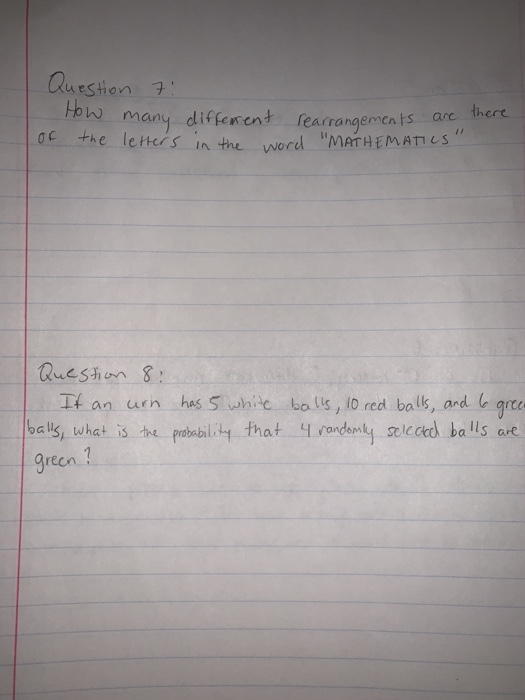 Question 7:
How many different rearrangements are there
of the letters in the word "MATHEMATICS"
Question 8:
If an urn has 5 white balls, 10 red balls, and 6 gree
balls, what is the probability that 4 randomly selected balls are
green?